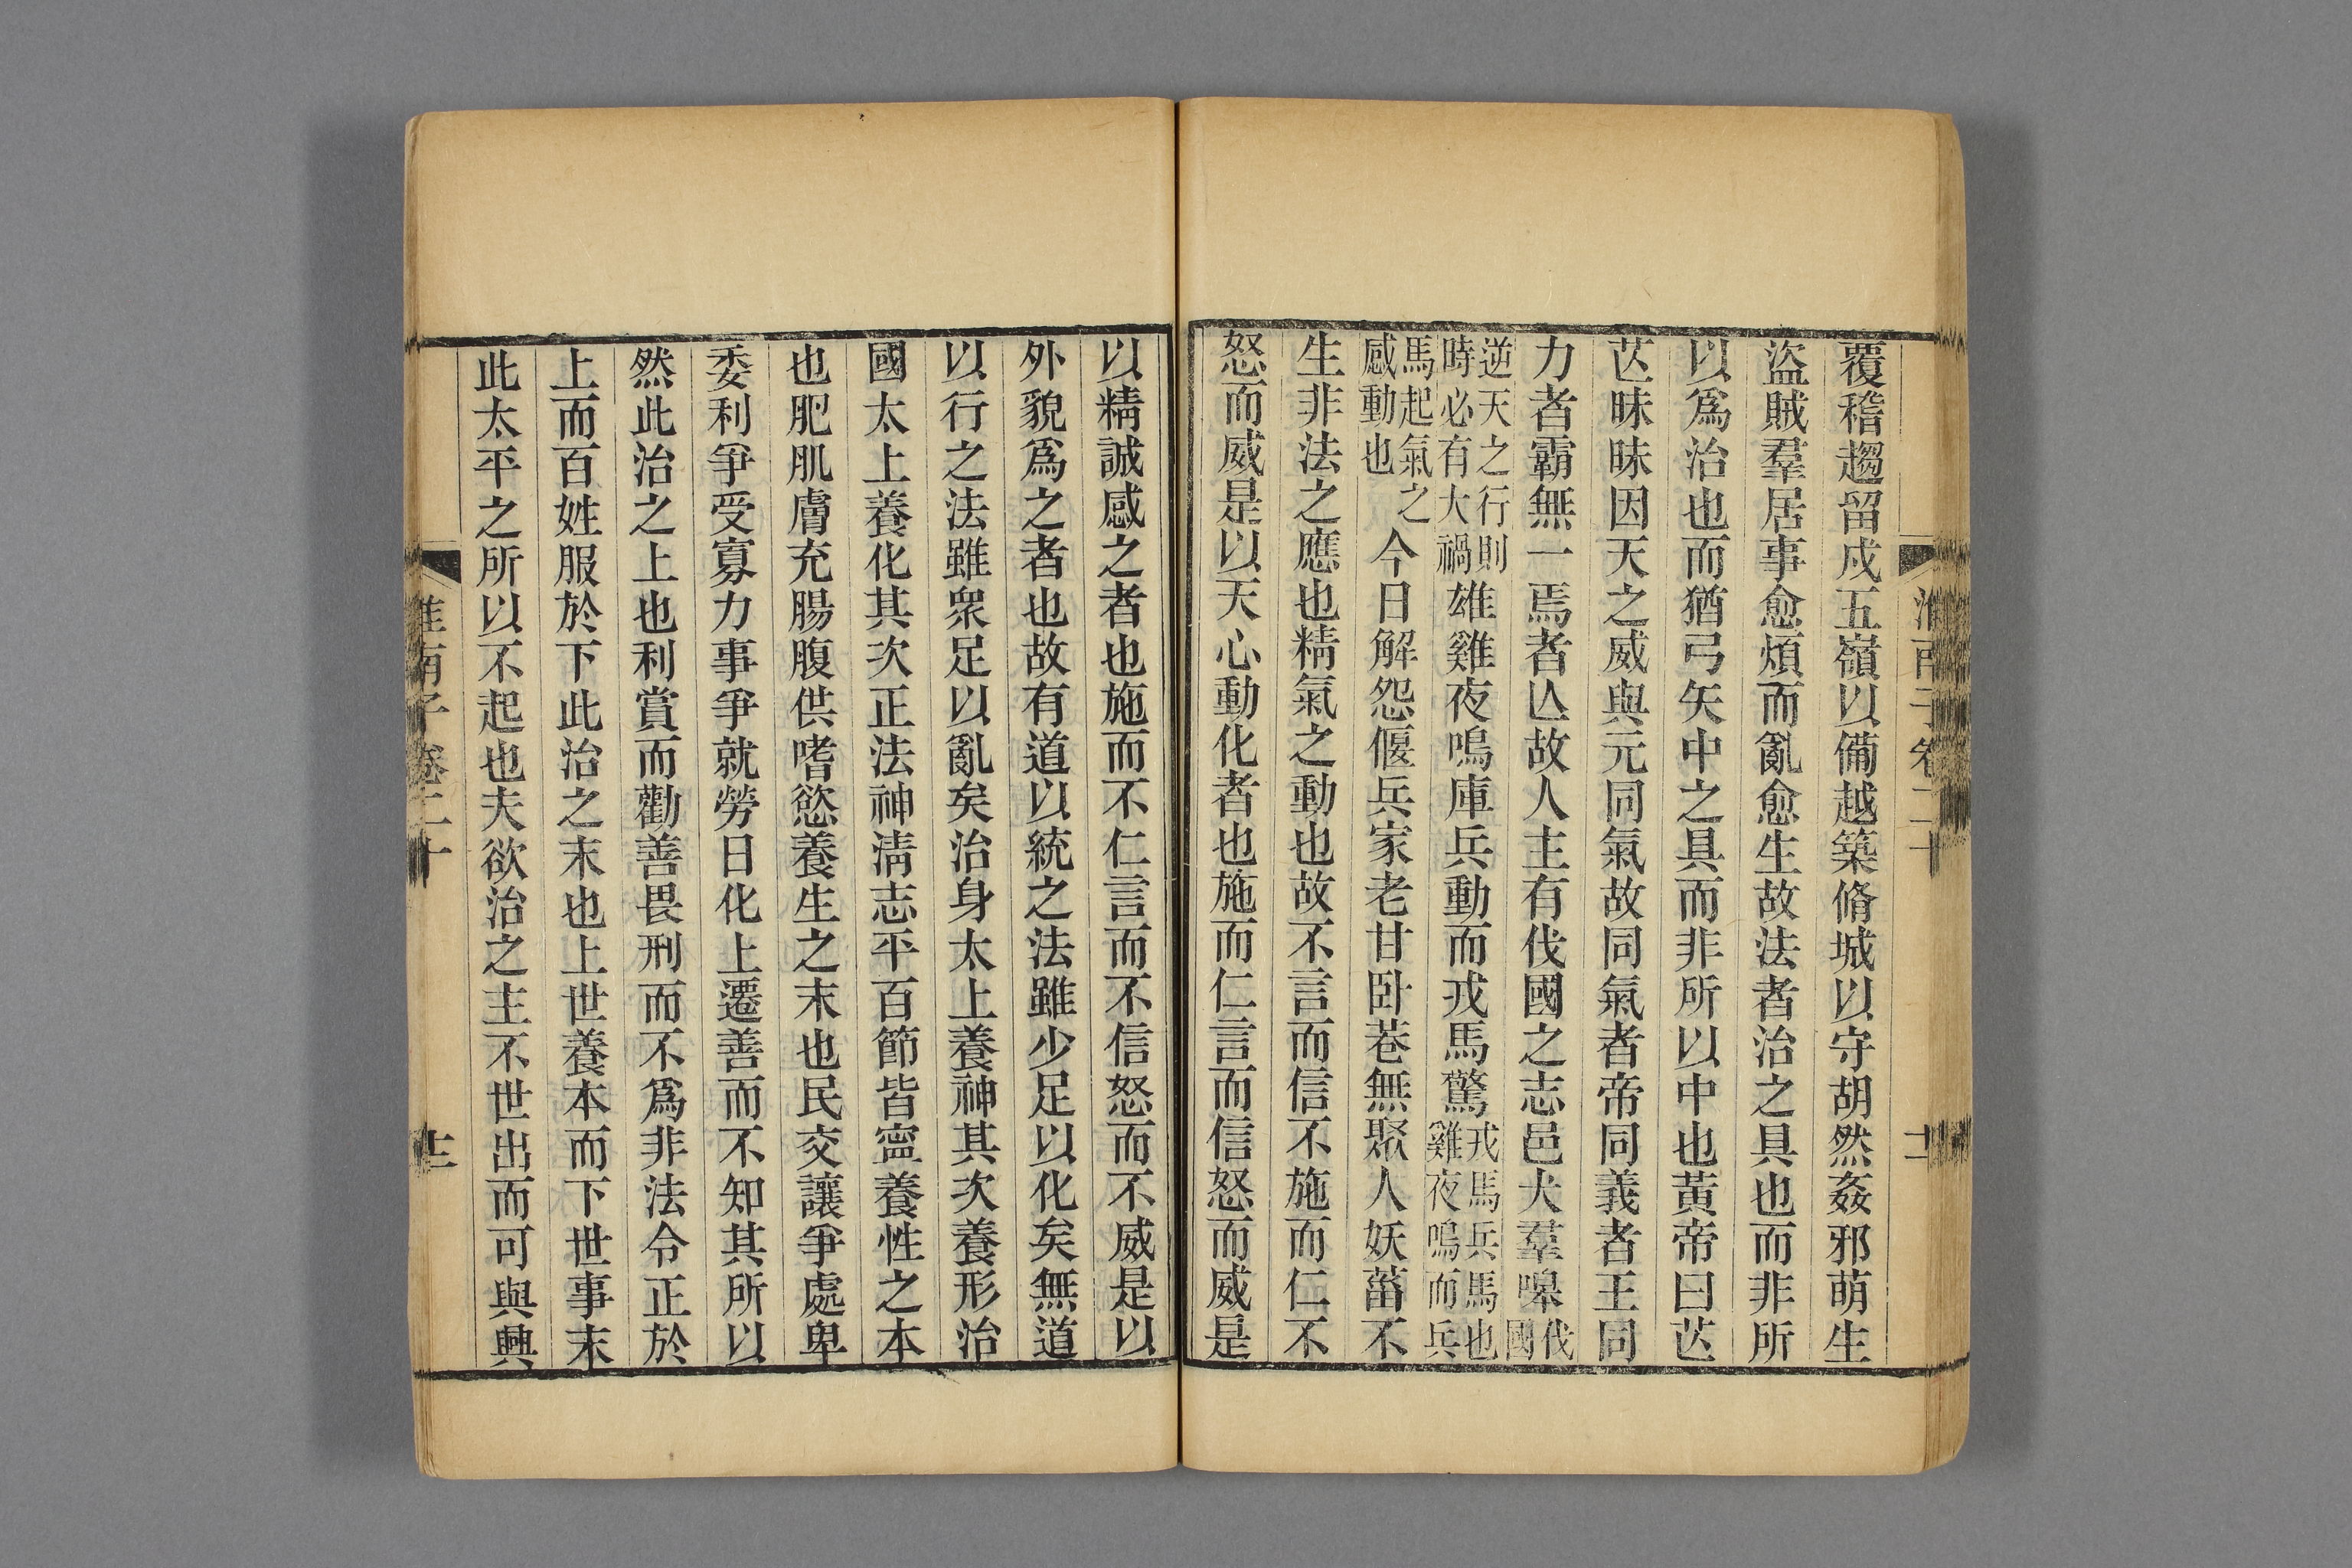 覆稽趨留戍五嶺以備越築脩城以守胡然姦邪萌生
盜賊羣居事愈煩而亂愈生故法者治之具也而非所
以爲治也而猶弓矢中之具而非所以中也黃帝曰芒
芒昧昧因天之威與元同氣故同氣者帝同義者王同
力者霸無一焉者亾故人主有伐國之志邑犬羣嘷伐國
逆天之行則時必有大禍雄雞夜鳴庫兵動而戎馬驚戎馬兵馬也雞夜鳴而兵
馬起氣之感動也今日解怨偃兵家老甘卧巷無聚人妖菑不
生非法之應也精氣之動也故不言而信不施而仁不
怒而威是以天心動化者也施而仁言而信怒而威是
以精誠感之者也施而不仁言而不信怒而不威是以
外貌爲之者也故有道以統之法雖少足以化矣無道
以行之法雖衆足以亂矣治身太上養神其次養形治
國太上養化其次正法神淸志平百節皆寧養性之本
也肥肌膚充腸腹供嗜慾養生之末也民交讓爭處卑
委利爭受寡力事爭就勞日化上遷善而不知其所以
然此治之上也利賞而勸善畏刑而不爲非法令正於
上而百姓服於下此治之末也上世養本而下世事末
此太平之所以不起也夫欲治之主不世出而可與興
淮南子卷二十